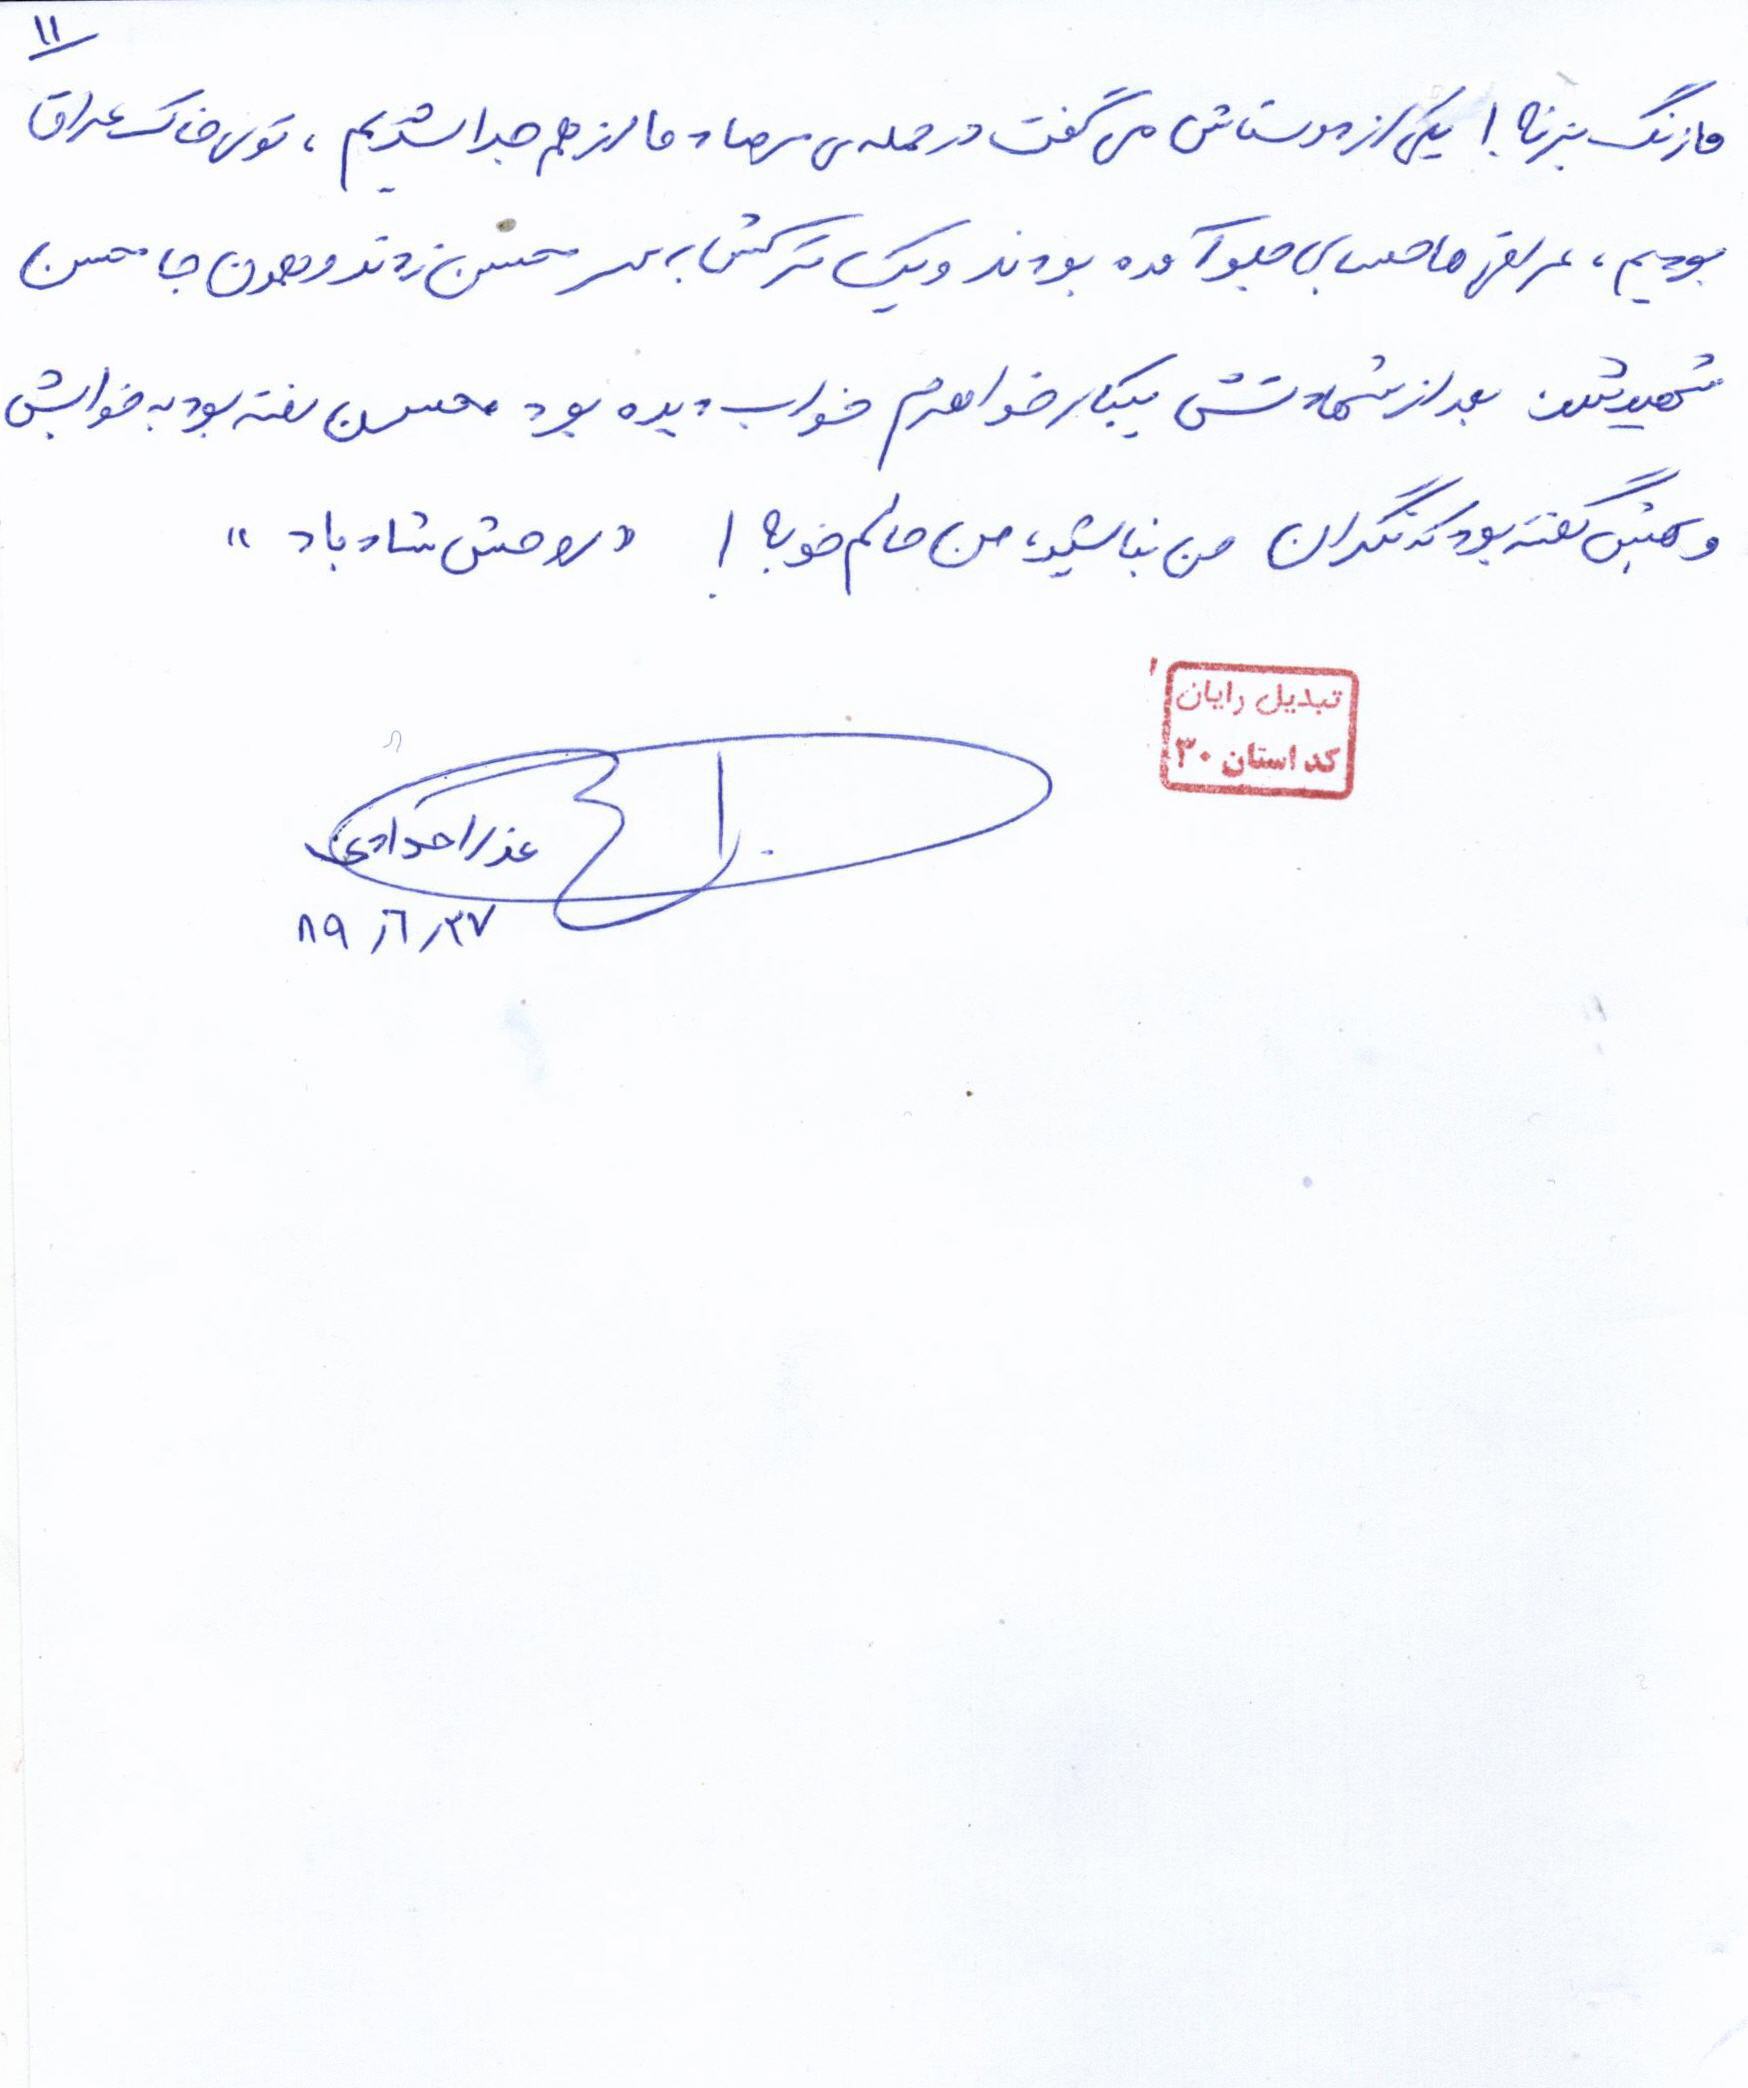 ۱۱
ما زنگ بزنه! یکی از دوستاش می گفت در حمله ی مرصاد ما از هم جدا شدیم، توی خاک عراق
بودیم، عراقی ها حسابی جلو آمده بودند و یک ترکش به سر محسن زدند و همون جا محسن
شهید شد. بعد از شهادتش یکبار خواهرم خواب دیده بود محسن رفته بود به خوابش
و بهش گفته بود که نگران من نباشید، من حالم خوبه! «روحش شاد باد»
تبدیل رایان
کد استان ۳۰
عذرا حدادی
۸۹/۶/۲۷